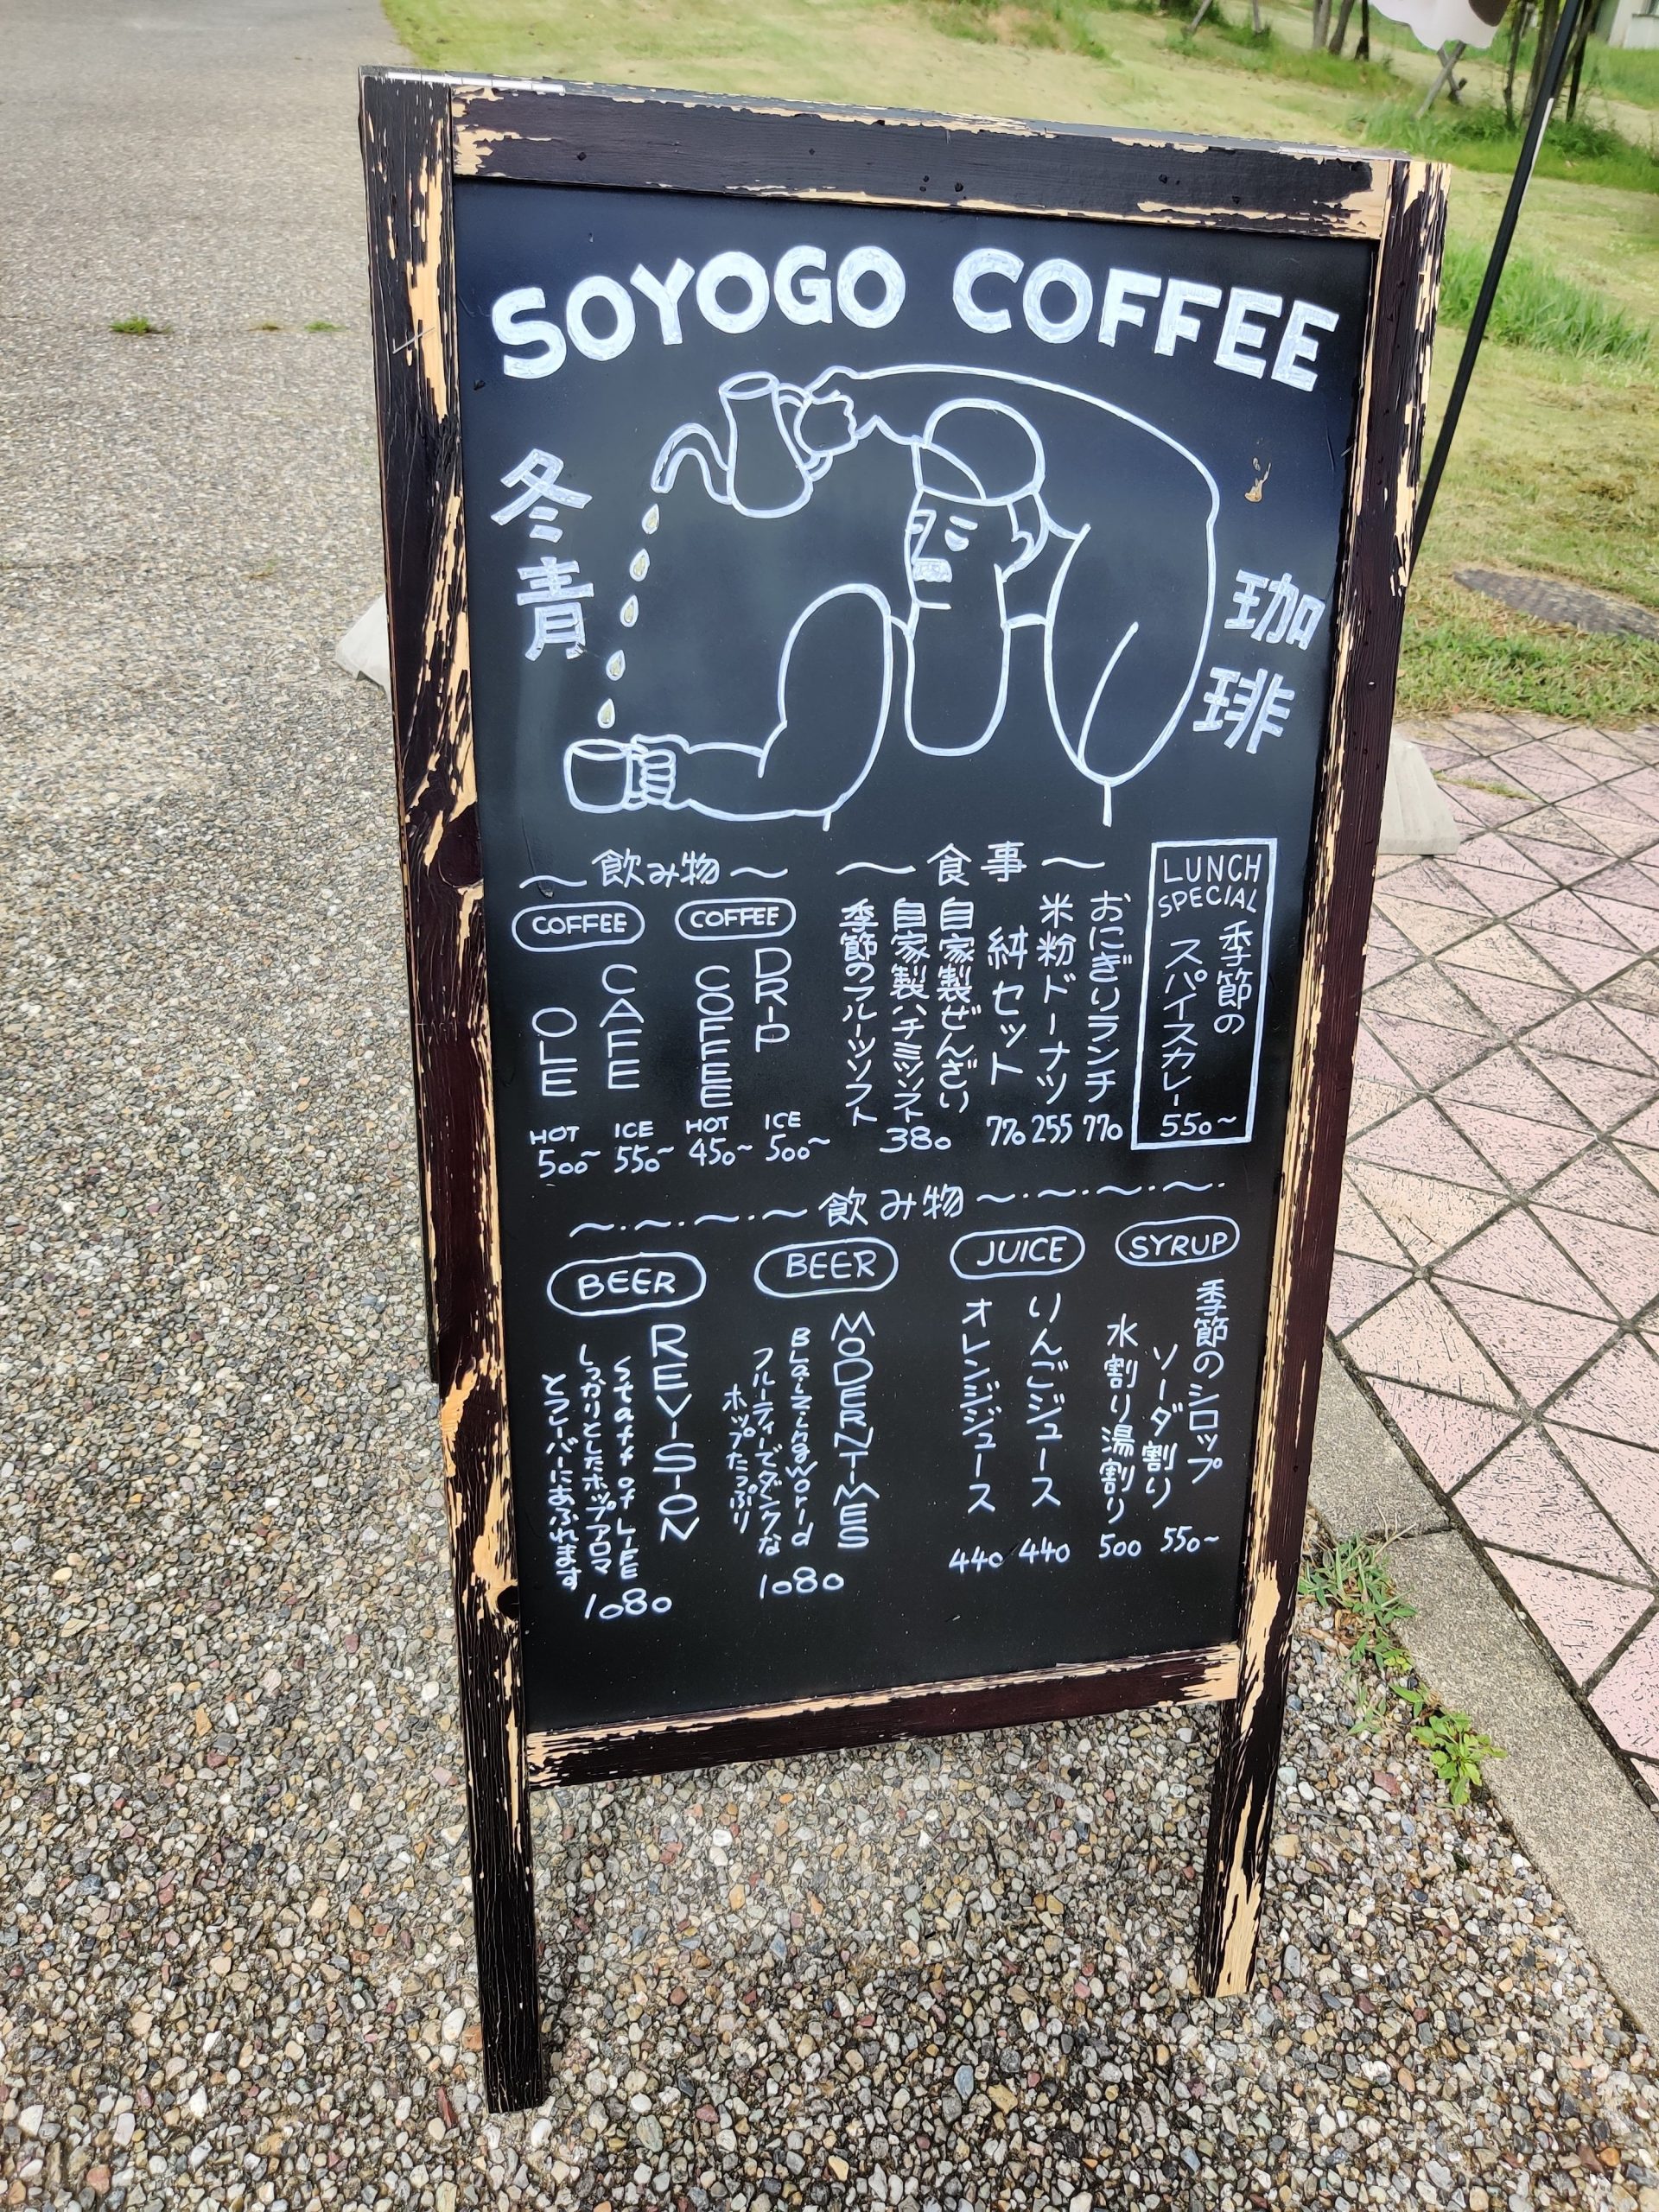 SOYOGO COFFEE
冬青
珈琲
〜飲み物〜
COFFEE
DRIP
COFFEE
ICE
500〜
HOT
450〜
COFFEE
CAFE
OLE
ICE
550〜
HOT
500〜
〜食事〜
LUNCH
SPECIAL
季節の
スパイスカレー
550〜
おにぎりランチ
770
米粉ドーナツ
255
セット
770
自家製ぜんざい
自家製ハチミツソフト
380
季節のフルーツソフト
〜・〜・〜・〜飲み物〜・〜・〜・〜・
SYRUP
季節のシロップ
ソーダ割り
550〜
水割り湯割り
500
JUICE
りんごジュース
440
オレンジジュース
440
BEER
MODERNTIMES
BlaizingWorld
フルーティーでダンクな
ホップたっぷり
1080
BEER
REVISION
of LIFE
しっかりとしたホップアロマ
とフレーバーにあふれます
1080